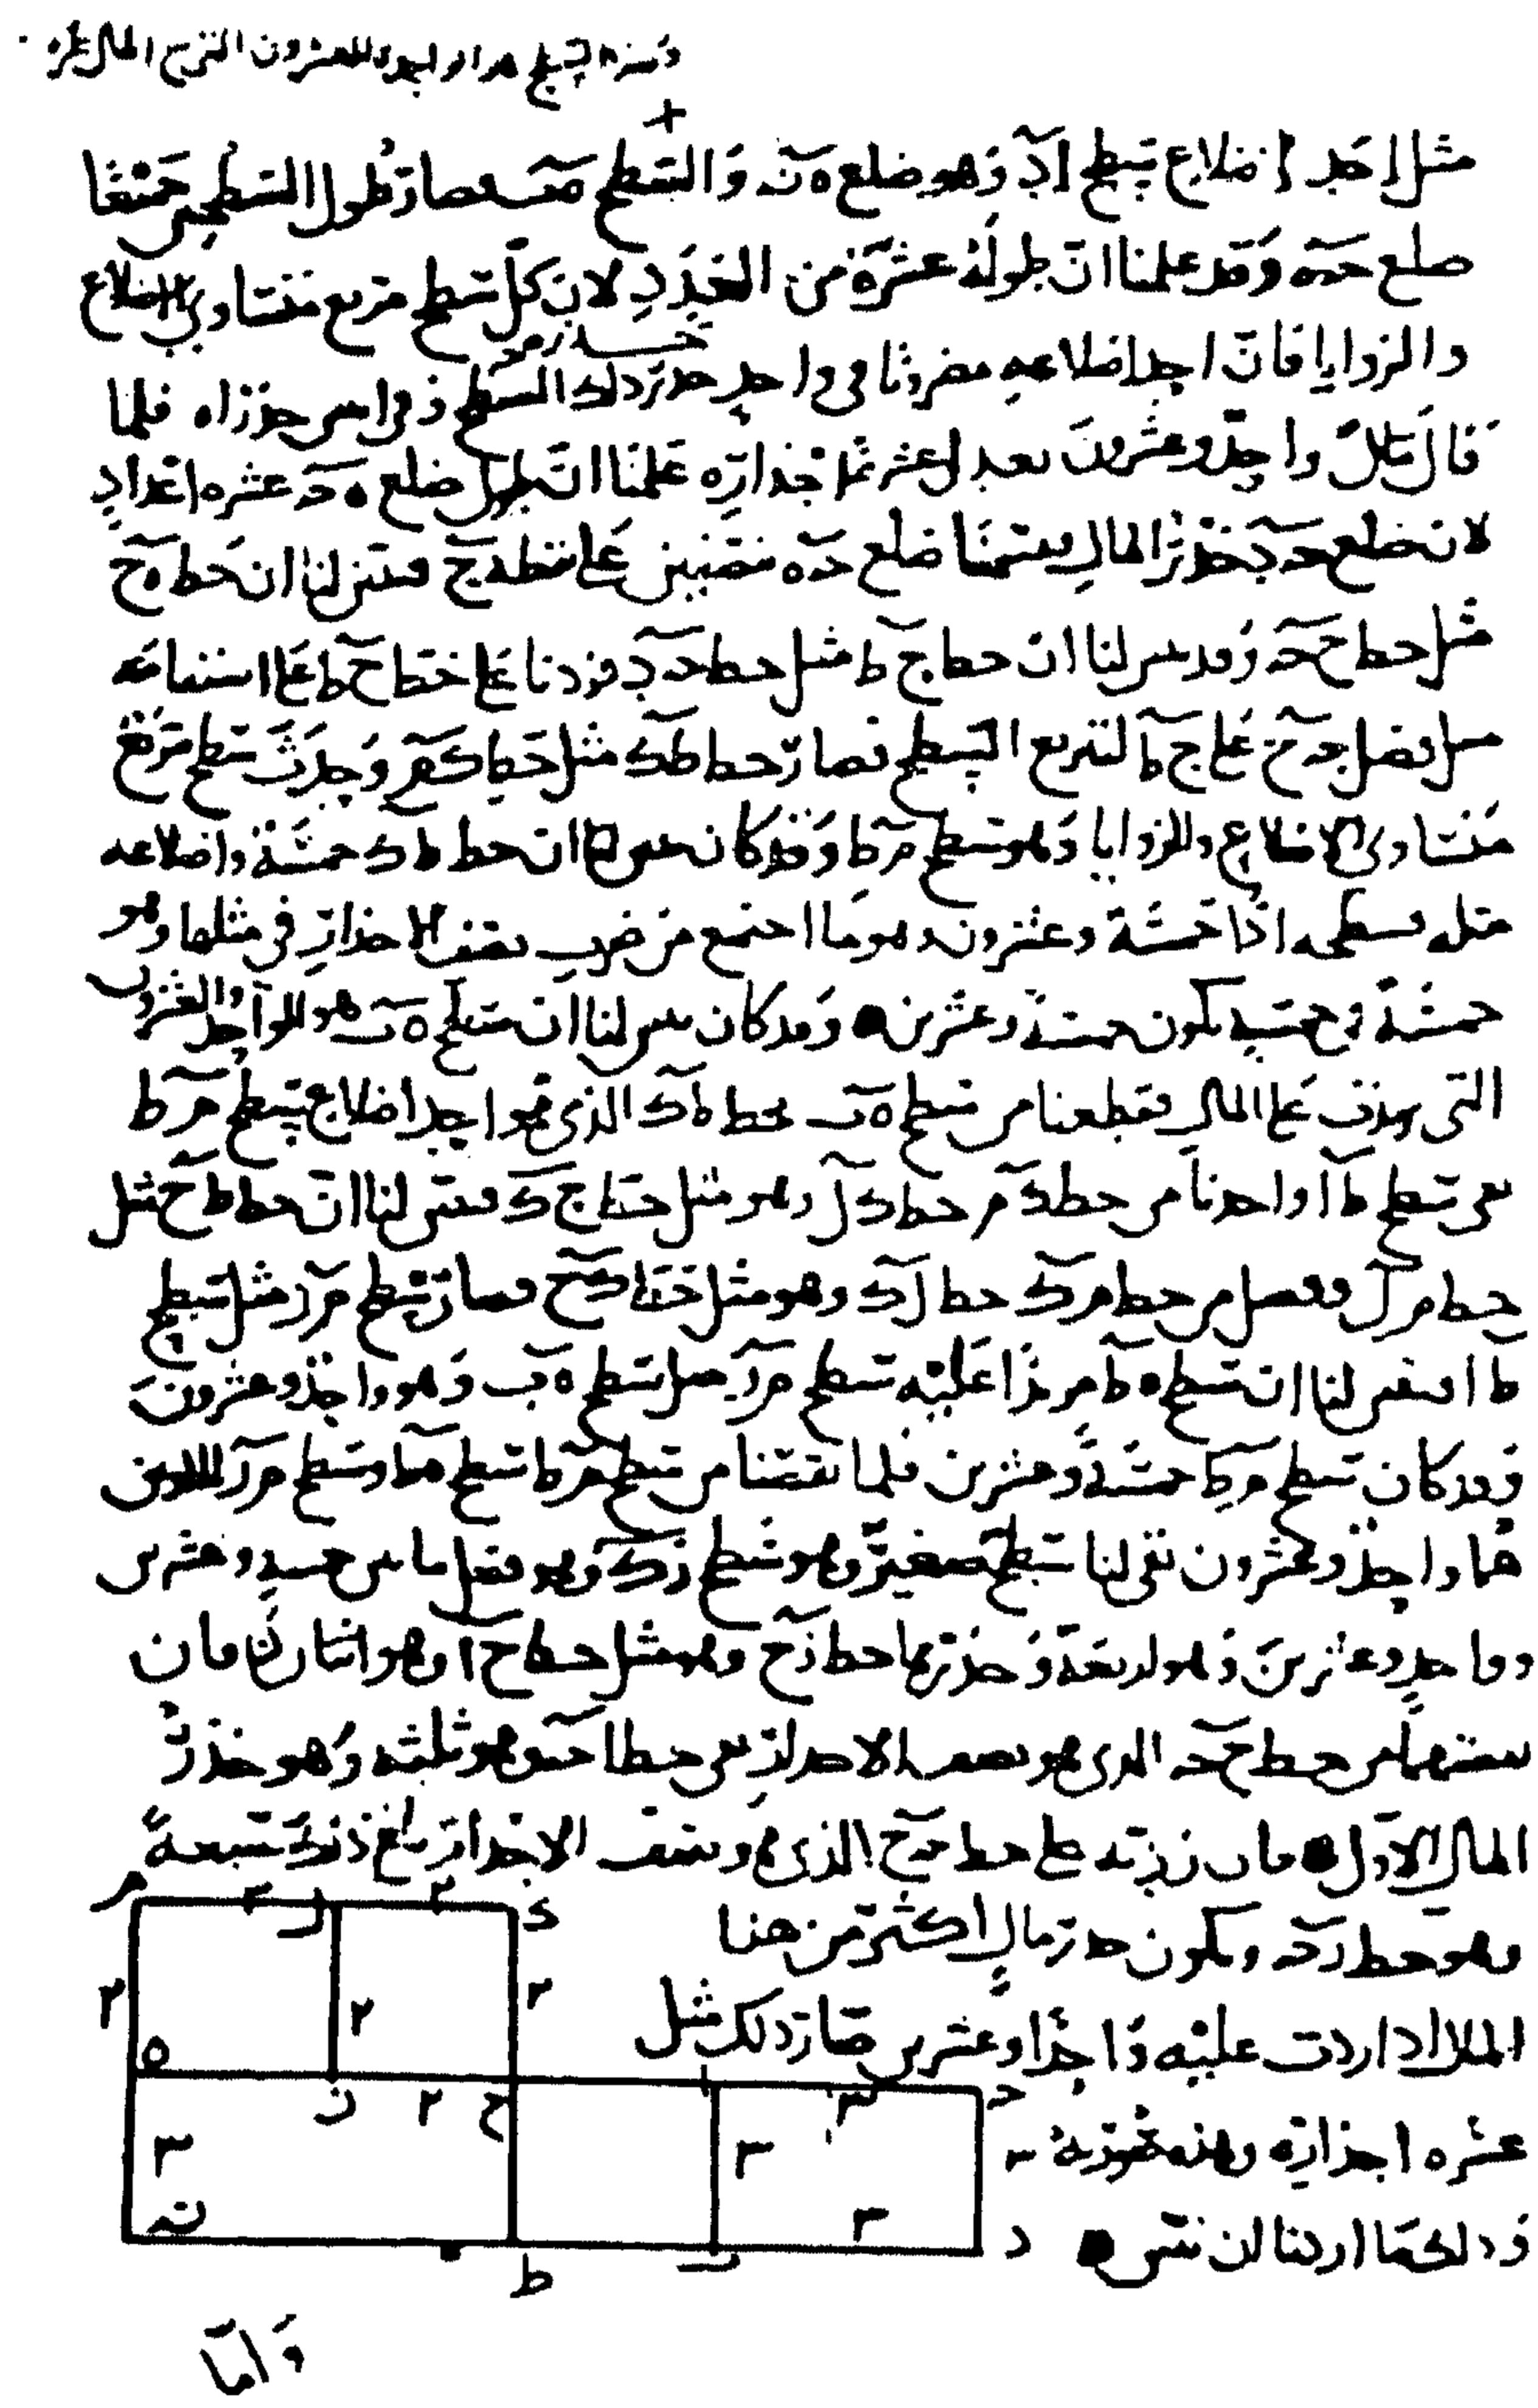 مثل احد اضلاع سطح اد وهو ضلع ه ن والسطح فصار طول السطحين جميعا
ضلع جه وقد علمنا ان طوله عشرة من العدد لان كل سطح مربع متساوي الاضلاع
والزوايا فان احد اضلاعه مضروبا في واحد جذر ذلك السطح وفي اثنين جذراه فلما
قال مال واحد وعشرون يعدل عشرة اجذاره علمنا ان طول ضلع ه ج عشرة اعداد
لان ضلع جد جذر المال فقسمنا ضلع جه بنصفين على نقطة ح فتبين لنا ان خط ه ح
مثل خط ح ج وقد تبين لنا ان خط ح ط مثل خط ج د فزدنا على خط ح ط على استقامته
مثل فضل ج ح على ح ط لتربع السطح فصار خط ط ك مثل خط ك م وحدث سطح مربع
متساوي الاضلاع والزوايا وهو سطح م ط وقد كان تبين لنا ان خط ط ك خمسة واضلاعه
مثله فسطحه اذا خمسة وعشرون وهو ما اجتمع من ضرب نصف الاجذار في مثلها وهو
خمسة في خمسة يكون خمسة وعشرين وقد كان تبين لنا ان سطح ه ب هو الواحد والعشرون
التي زيدت على المال فقطعنا من سطح ه ب بخط ط ك الذي هو احد اضلاع سطح م ط
بقي سطح ط ا واخذنا من خط ك م خط ك ل وهو مثل خط ح ك فتبين لنا ان خط ط ح مثل
خط م ل وفضل من خط م ك خط ل ك وهو مثل خط ك ح فصار سطح م ر مثل سطح
ط ا فتبين لنا ان سطح ه ط مزيدا عليه سطح م ر مثل سطح ه ب وهو واحد وعشرون
وقد كان سطح م ط خمسة وعشرين فلما نقصنا من سطح م ط سطح ه ط وسطح م ر اللذين
هما واحد وعشرون بقي لنا سطح صغير وهو سطح ر ك وهو فضل ما بين خمسة وعشرين
وواحد وعشرين وهو اربعة وجذرها خط ر ح وهو مثل خط ح ا وهو اثنان فان
نقصتهما من خط ح ج الذي هو نصف الاجذار بقي خط ا ج وهو ثلثة وهو جذر
المال الاول فان زدته على خط ج ح الذي هو نصف الاجذار بلغ ذلك سبعة
وهو خط ر ج ويكون جذر مال اكثر من هذا
المال اذا زدت عليه واحدا وعشرين صار ذلك مثل
عشرة اجذاره وهذه صورته
وذلك ما اردنا ان نبين
م
ل
ك
٢
٢
٢
٢
٢
ه
ر
٢
ح
ا
ج
٣
٣
٣
٣
ن
ط
د
واما